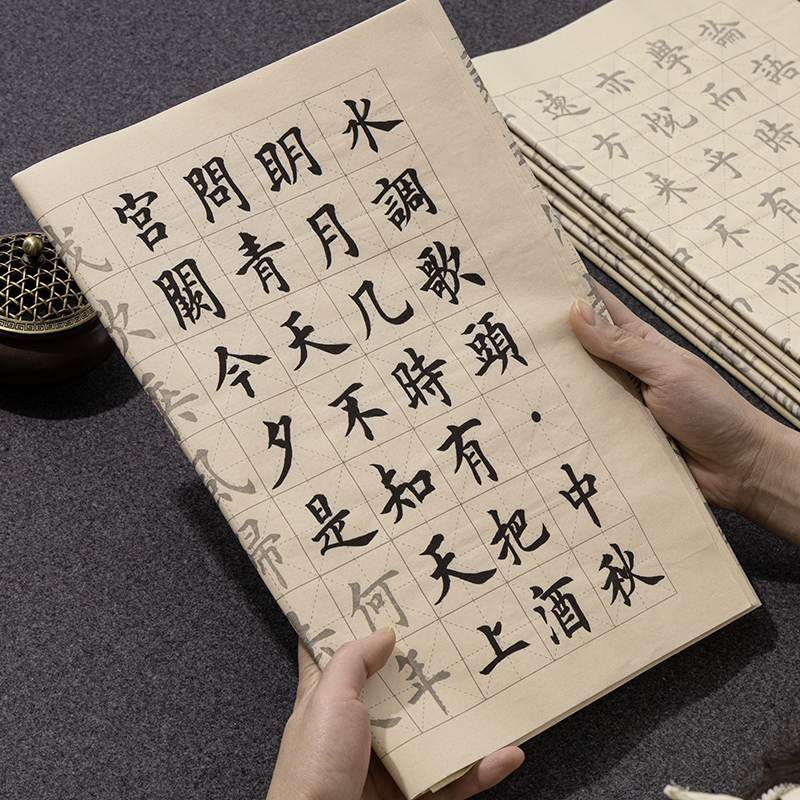 水調歌頭·中秋
明月几時有把酒
問青天不知天上
宮闕今夕是何年
我欲乘風歸去
論語
學而時
亦悅乎有
遠方来不亦